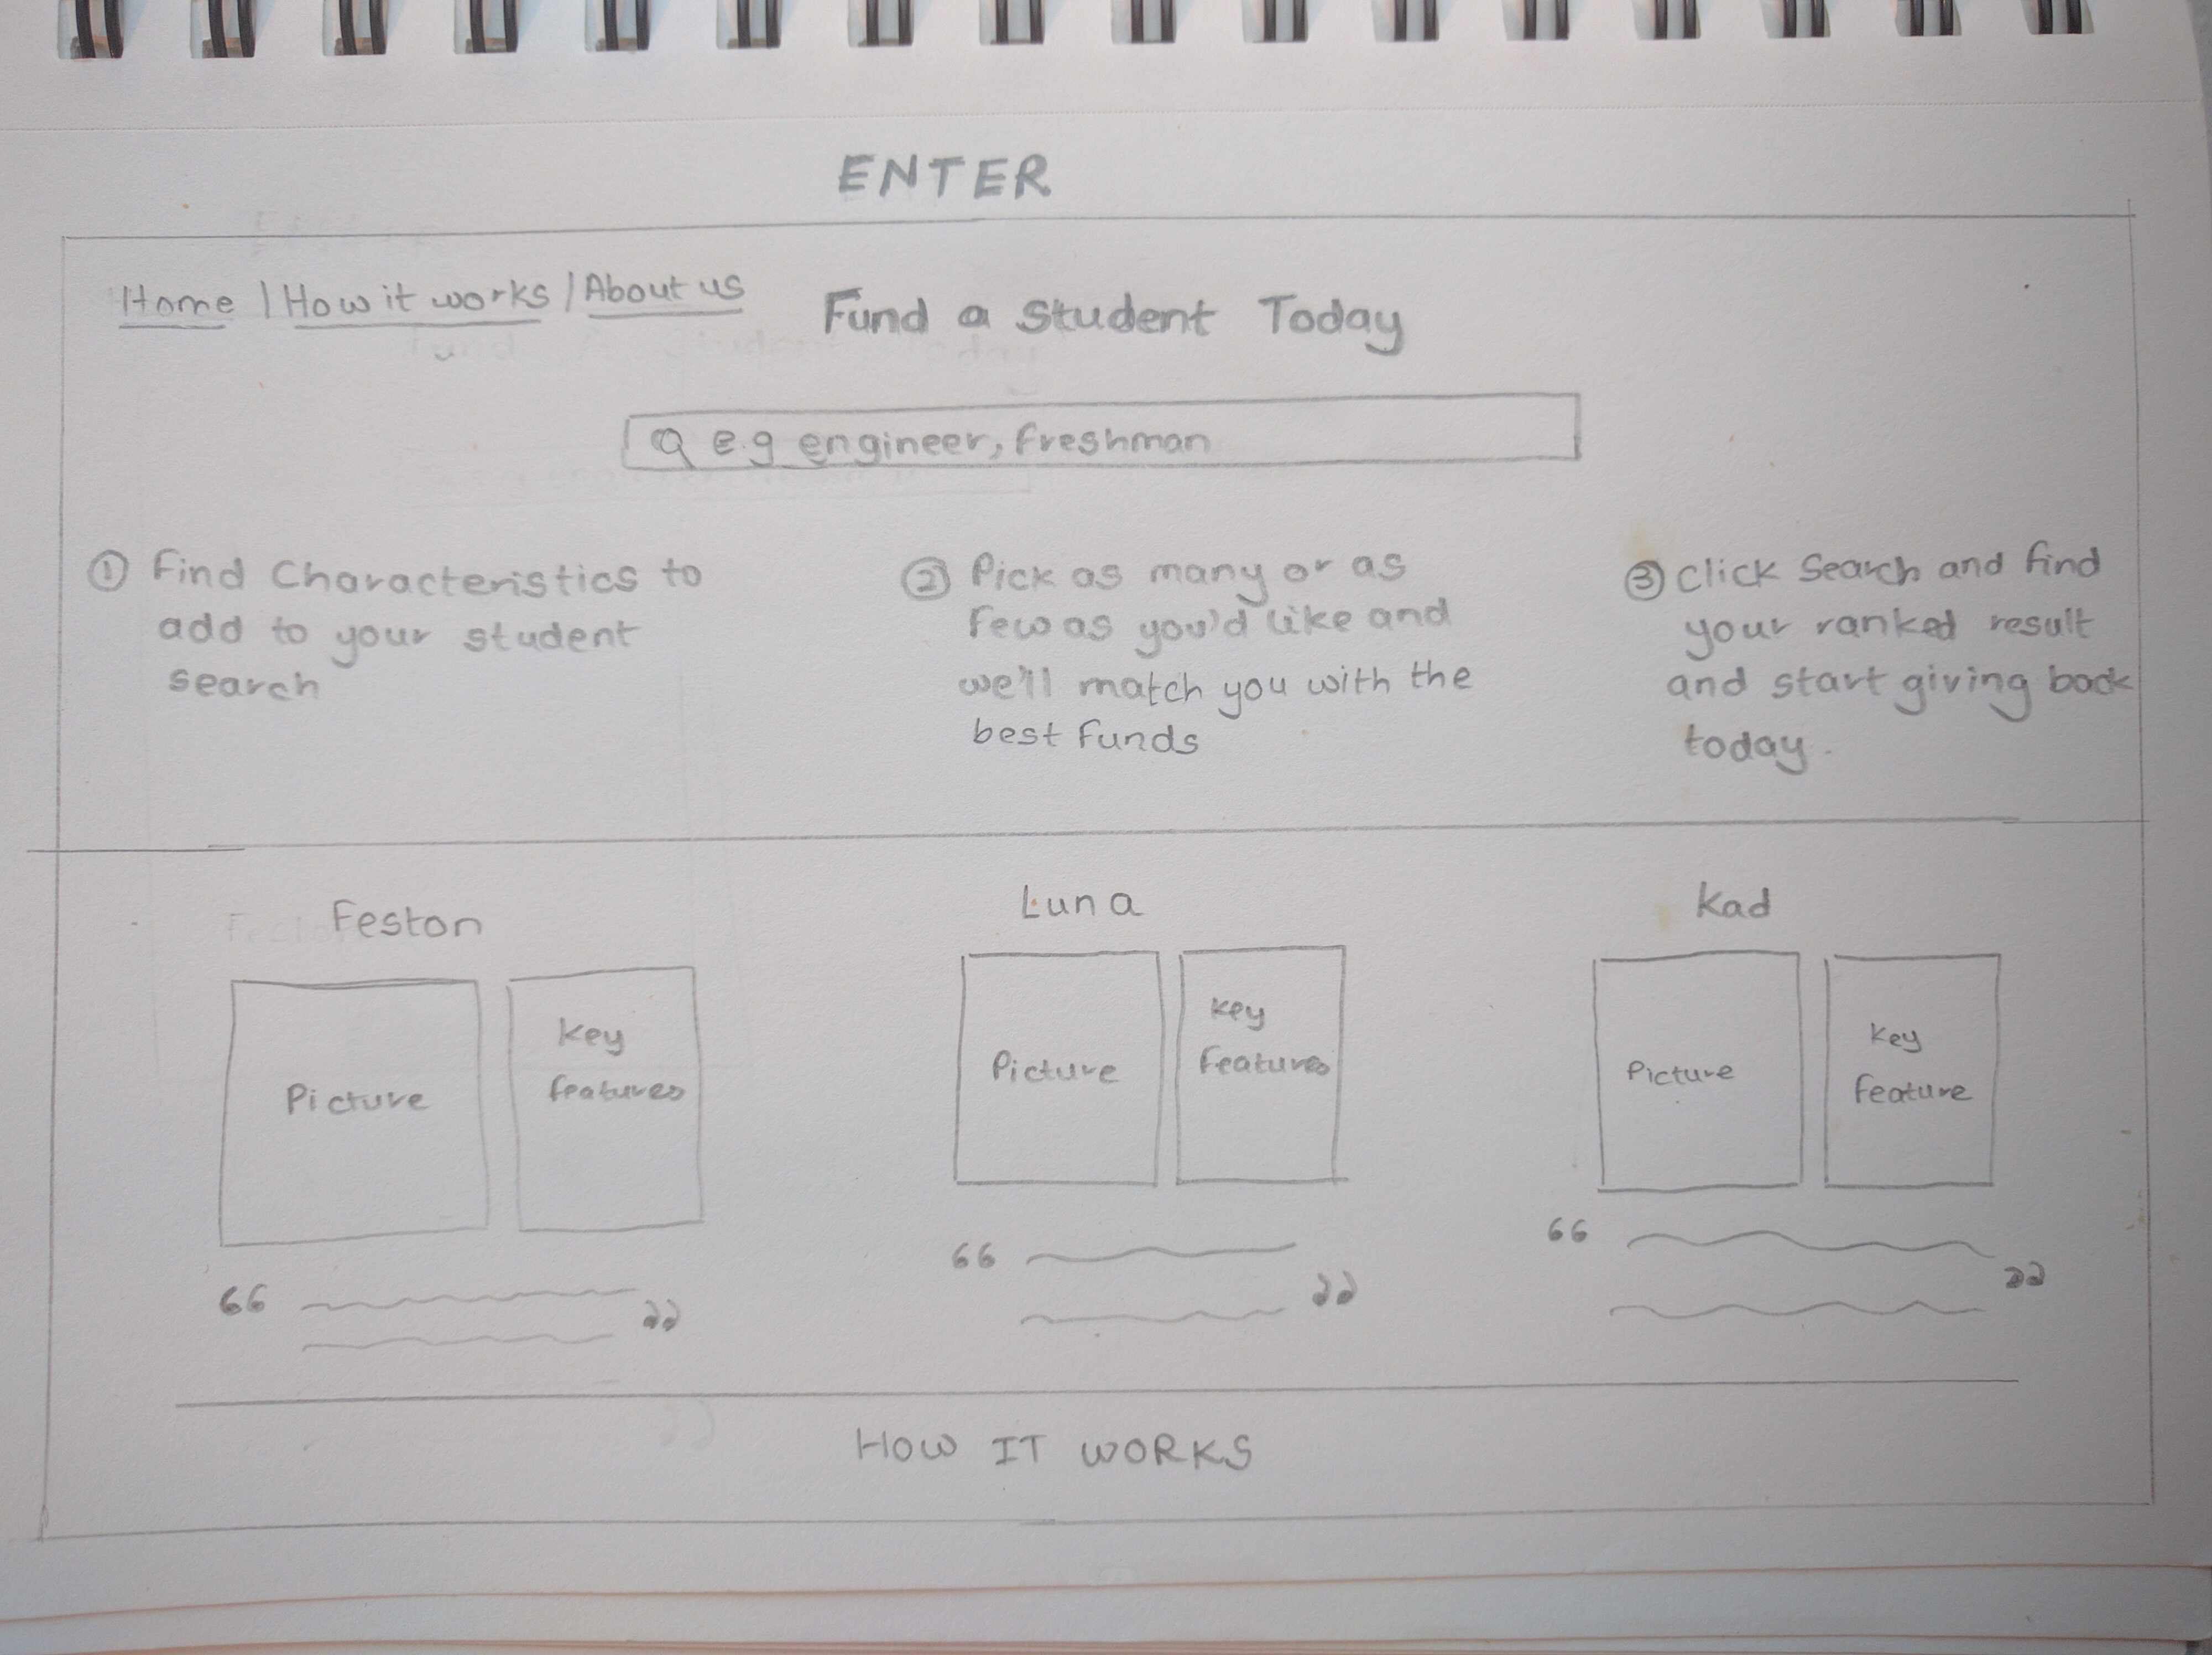 ENTER
Home | How it works | About us
Fund a Student Today
e.g engineer, Freshman
① Find Characteristics to
add to your student
search
② Pick as many or as
few as you'd like and
we'll match you with the
best funds
③ Click Search and find
your ranked result
and start giving back
today.
Feston
Picture
Key
features
“ ”
Luna
Picture
Key
Features
“ ”
Kad
Picture
Key
Feature
“ ”
HOW IT WORKS